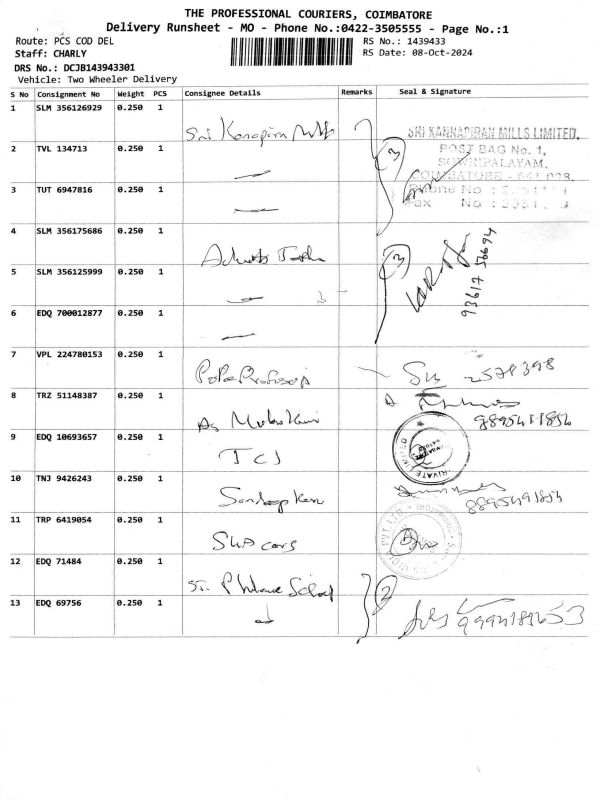 THE PROFESSIONAL COURIERS, COIMBATORE
Delivery Runsheet - MO - Phone No.:0422-3505555 - Page No.:1
Route: PCS COD DEL RS No.: 1439433
Staff: CHARLY RS Date: 08-Oct-2024
DRS No.: DCJB143943301
Vehicle: Two Wheeler Delivery
S No Consignment No Weight PCS Consignee Details Remarks Seal & Signature
1 SLM 356126929 0.250 1 Sri SRI KANNAPIRAN MILLS LIMITED,
POST BAG No. 1,
2 TVL 134713 0.250 1 3
SOWRIPALAYAM,
COIMBATORE - 641 028.
3 TUT 6947816 0.250 1 Phone No :
Fax No :
4 SLM 356175686 0.250 1
5 SLM 356125999 0.250 1 3 93617 56694
6 EDQ 700012877 0.250 1
7 VPL 224780153 0.250 1 2578398
8 TRZ 51148387 0.250 1
9 EDQ 10693657 0.250 1 TCI PRIVATE LIMITED
10 TNJ 9426243 0.250 1 Sandeep 8895491854
11 TRP 6419054 0.250 1 cars PVT LTD
12 EDQ 71484 0.250 1 St. 2
13 EDQ 69756 0.250 1